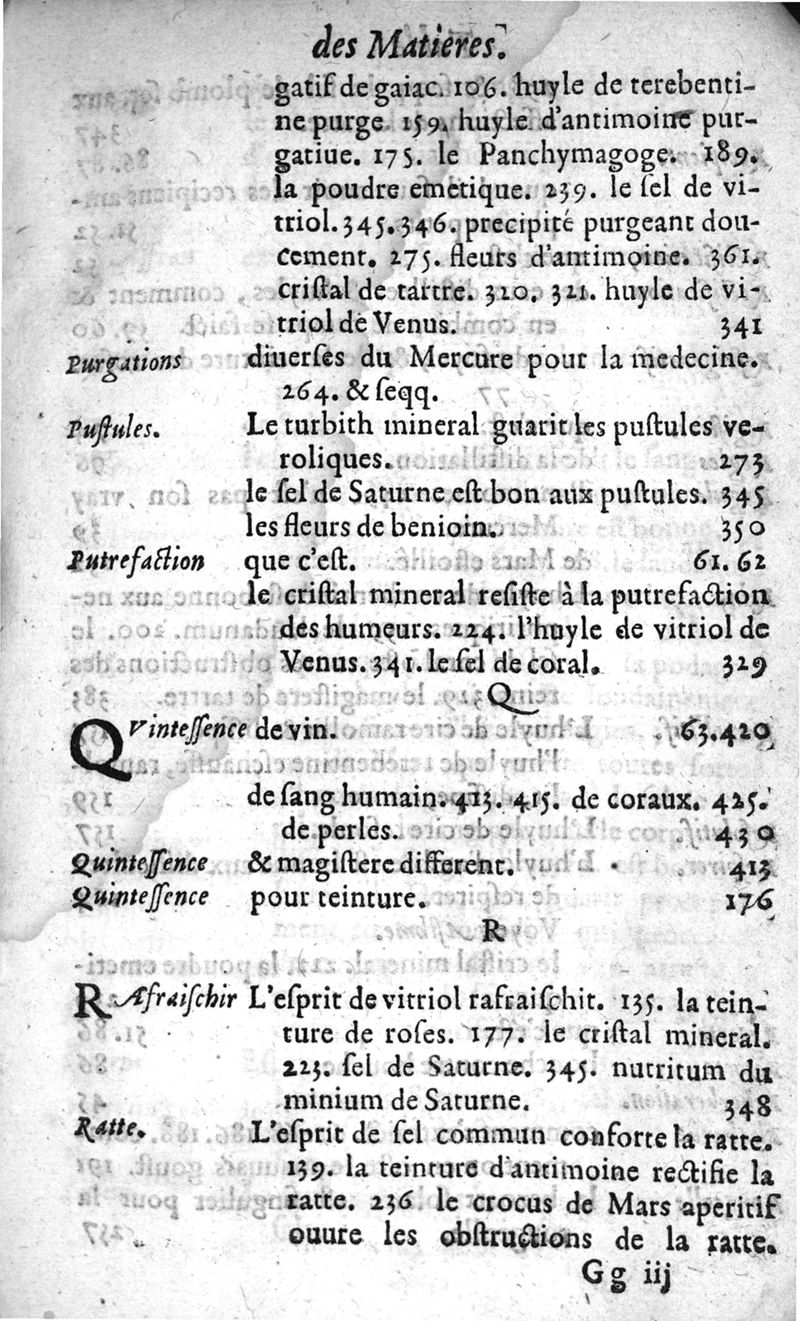 des Matieres.
gatif de gaiac. 106. huyle de terebenti-
ne purge 159. huyle d'antimoine pur-
gatiue. 175. le Panchymagoge. 189.
la poudre emetique. 239. le ſel de vi-
triol. 345. 346. precipité purgeant dou-
cement. 275. fleurs d'antimoine. 361.
criſtal de tartre. 320. 321. huyle de vi-
triol de Venus. 341
Purgations diuerſes du Mercure pour la medecine.
264. & ſeqq.
Puſtules. Le turbith mineral guarit les puſtules ve-
roliques. 273
le ſel de Saturne eſt bon aux puſtules. 345
les fleurs de benioin. 350
Putrefaction que c'eſt. 61. 62
le criſtal mineral reſiſte à la putrefaction
des humeurs. 224. l'huyle de vitriol de
Venus. 341. le ſel de coral. 329
Q
QVinteſſence de vin. 63. 420
de ſang humain. 413. 415. de coraux. 425.
de perles. 430
Quinteſſence & magiſtere different. 413
Quinteſſence pour teinture. 176
R
RAfraiſchir L'eſprit de vitriol rafraiſchit. 135. la tein-
ture de roſes. 177. le criſtal mineral.
223. ſel de Saturne. 345. nutritum du
minium de Saturne. 348
Ratte. L'eſprit de ſel commun conforte la ratte.
139. la teinture d'antimoine rectifie la
ratte. 236 le crocus de Mars aperitif
ouure les obſtructions de la ratte.
Gg iij